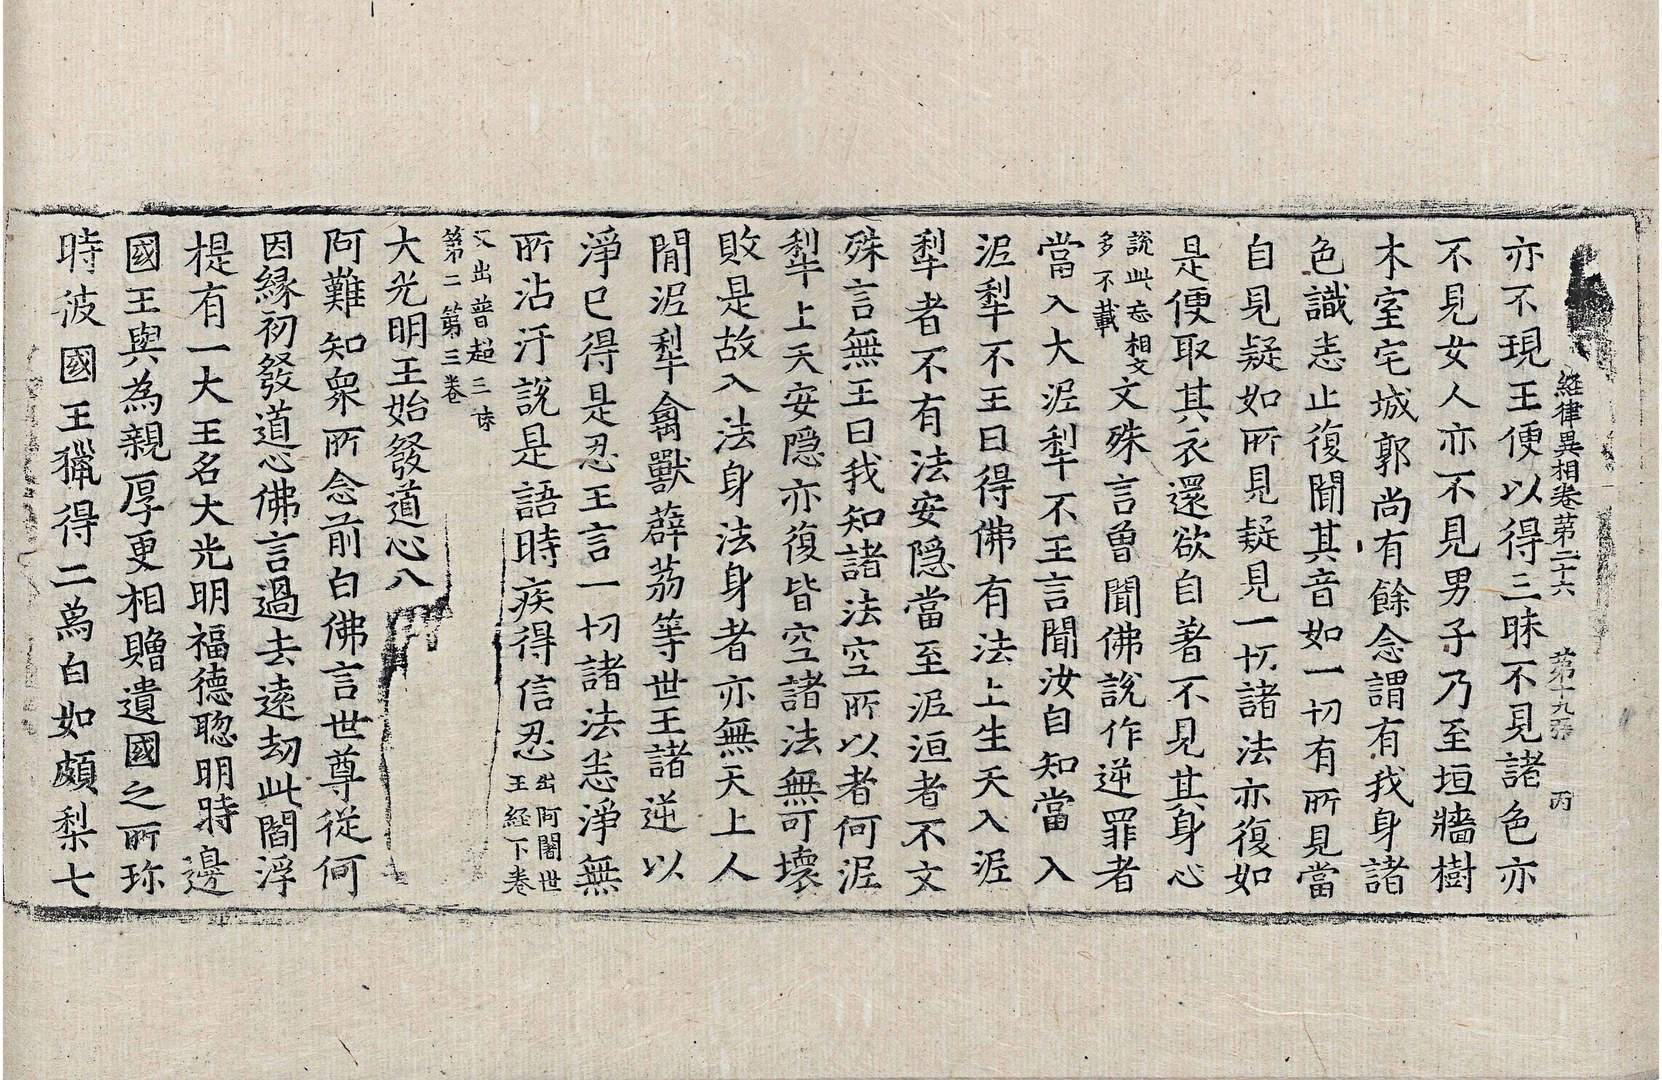 經律異相卷第二十六 第十九張 丙
亦不現王便以得三昧不見諸色亦
不見女人亦不見男子乃至垣牆樹
木室宅城郭尚有餘念謂有我身諸
色識恚止復聞其音如一切有所見當
自見疑如所見疑見一切諸法亦復如
是便取其衣還欲自著不見其身心
說此忘相文
多不載
文殊言曾聞佛說作逆罪者
當入大泥犁不王言聞汝自知當入
泥犁不王曰得佛有法上生天入泥
犁者不有法安隱當至泥洹者不文
殊言無王曰我知諸法空所以者何泥
犁上天安隱亦復皆空諸法無可壞
敗是故入法身法身者亦無天上人
間泥犁禽獸薜荔等世王諸逆以
淨已得是忍王言一切諸法恚淨無
所沾汙說是語時疾得信忍
出阿闍世
王經下卷
又出普超三昧
第二第三卷
大光明王始發道心八
阿難知眾所念前白佛言世尊從何
因緣初發道心佛言過去遠劫此閻浮
提有一大王名大光明福德聰明時邊
國王與為親厚更相贈遺國之所珍
時彼國王獵得二象白如頗梨七